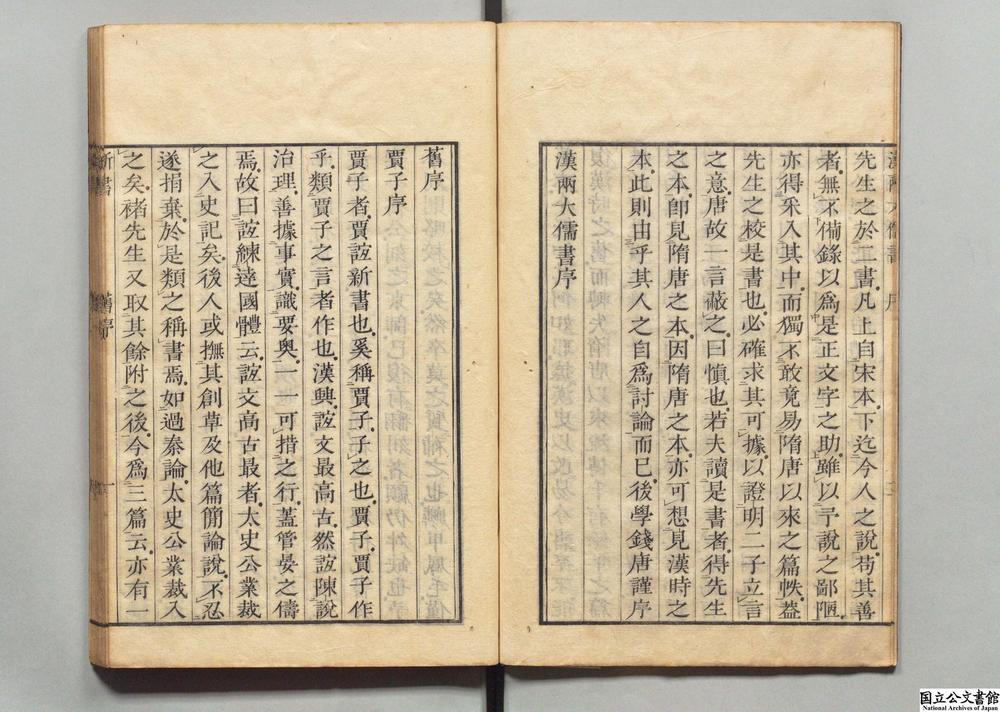 先生之於二書凡上自宋本下迄今人之說苟其善
者無不備錄以爲是正文字之助雖以予說之鄙陋
亦得采入其中而獨不敢竟易隋唐以來之篇帙葢
先生之校是書也必確求其可據以證明二子立言
之意唐故一言蔽之曰愼也若夫讀是書者得先生
之本卽見隋唐之本因隋唐之本亦可想見漢時之
本此則由乎其人之自爲討論而已後學錢唐謹序
漢兩大儒書序
舊序
賈子序
賈子者賈誼新書也奚稱賈子子之也賈子賈子作
乎類賈子之言者作也漢興誼文最高古然誼陳說
治理善據事實識要奧一一可措之行蓋管晏之儔
焉故曰誼練達國體云誼文高古最者太史公業裁
之入史記矣後人或撫其創草及他篇簡論說不忍
遂捐棄於是類之稱書焉如過秦論太史公業裁入
之矣褚先生又取其餘附之後今爲三篇云亦有一
新書 舊序
国立公文書館
National Archives of Japan